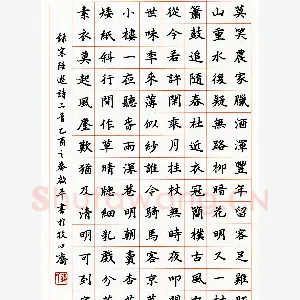 莫笑農家臘酒渾豐年留客足雞
山重水複疑無路柳暗花明又一
簫鼓追隨春社近衣冠簡樸古風
從今若許閑乘月拄杖無時夜叩
世味年來薄似紗誰令騎馬客京
小樓一夜聽春雨深巷明朝賣杏
矮紙斜行閑作草晴窗細乳戲分
素衣莫起風塵歎猶及清明可到家
錄宋陸游詩二首乙酉之春啟平書於牧心齋